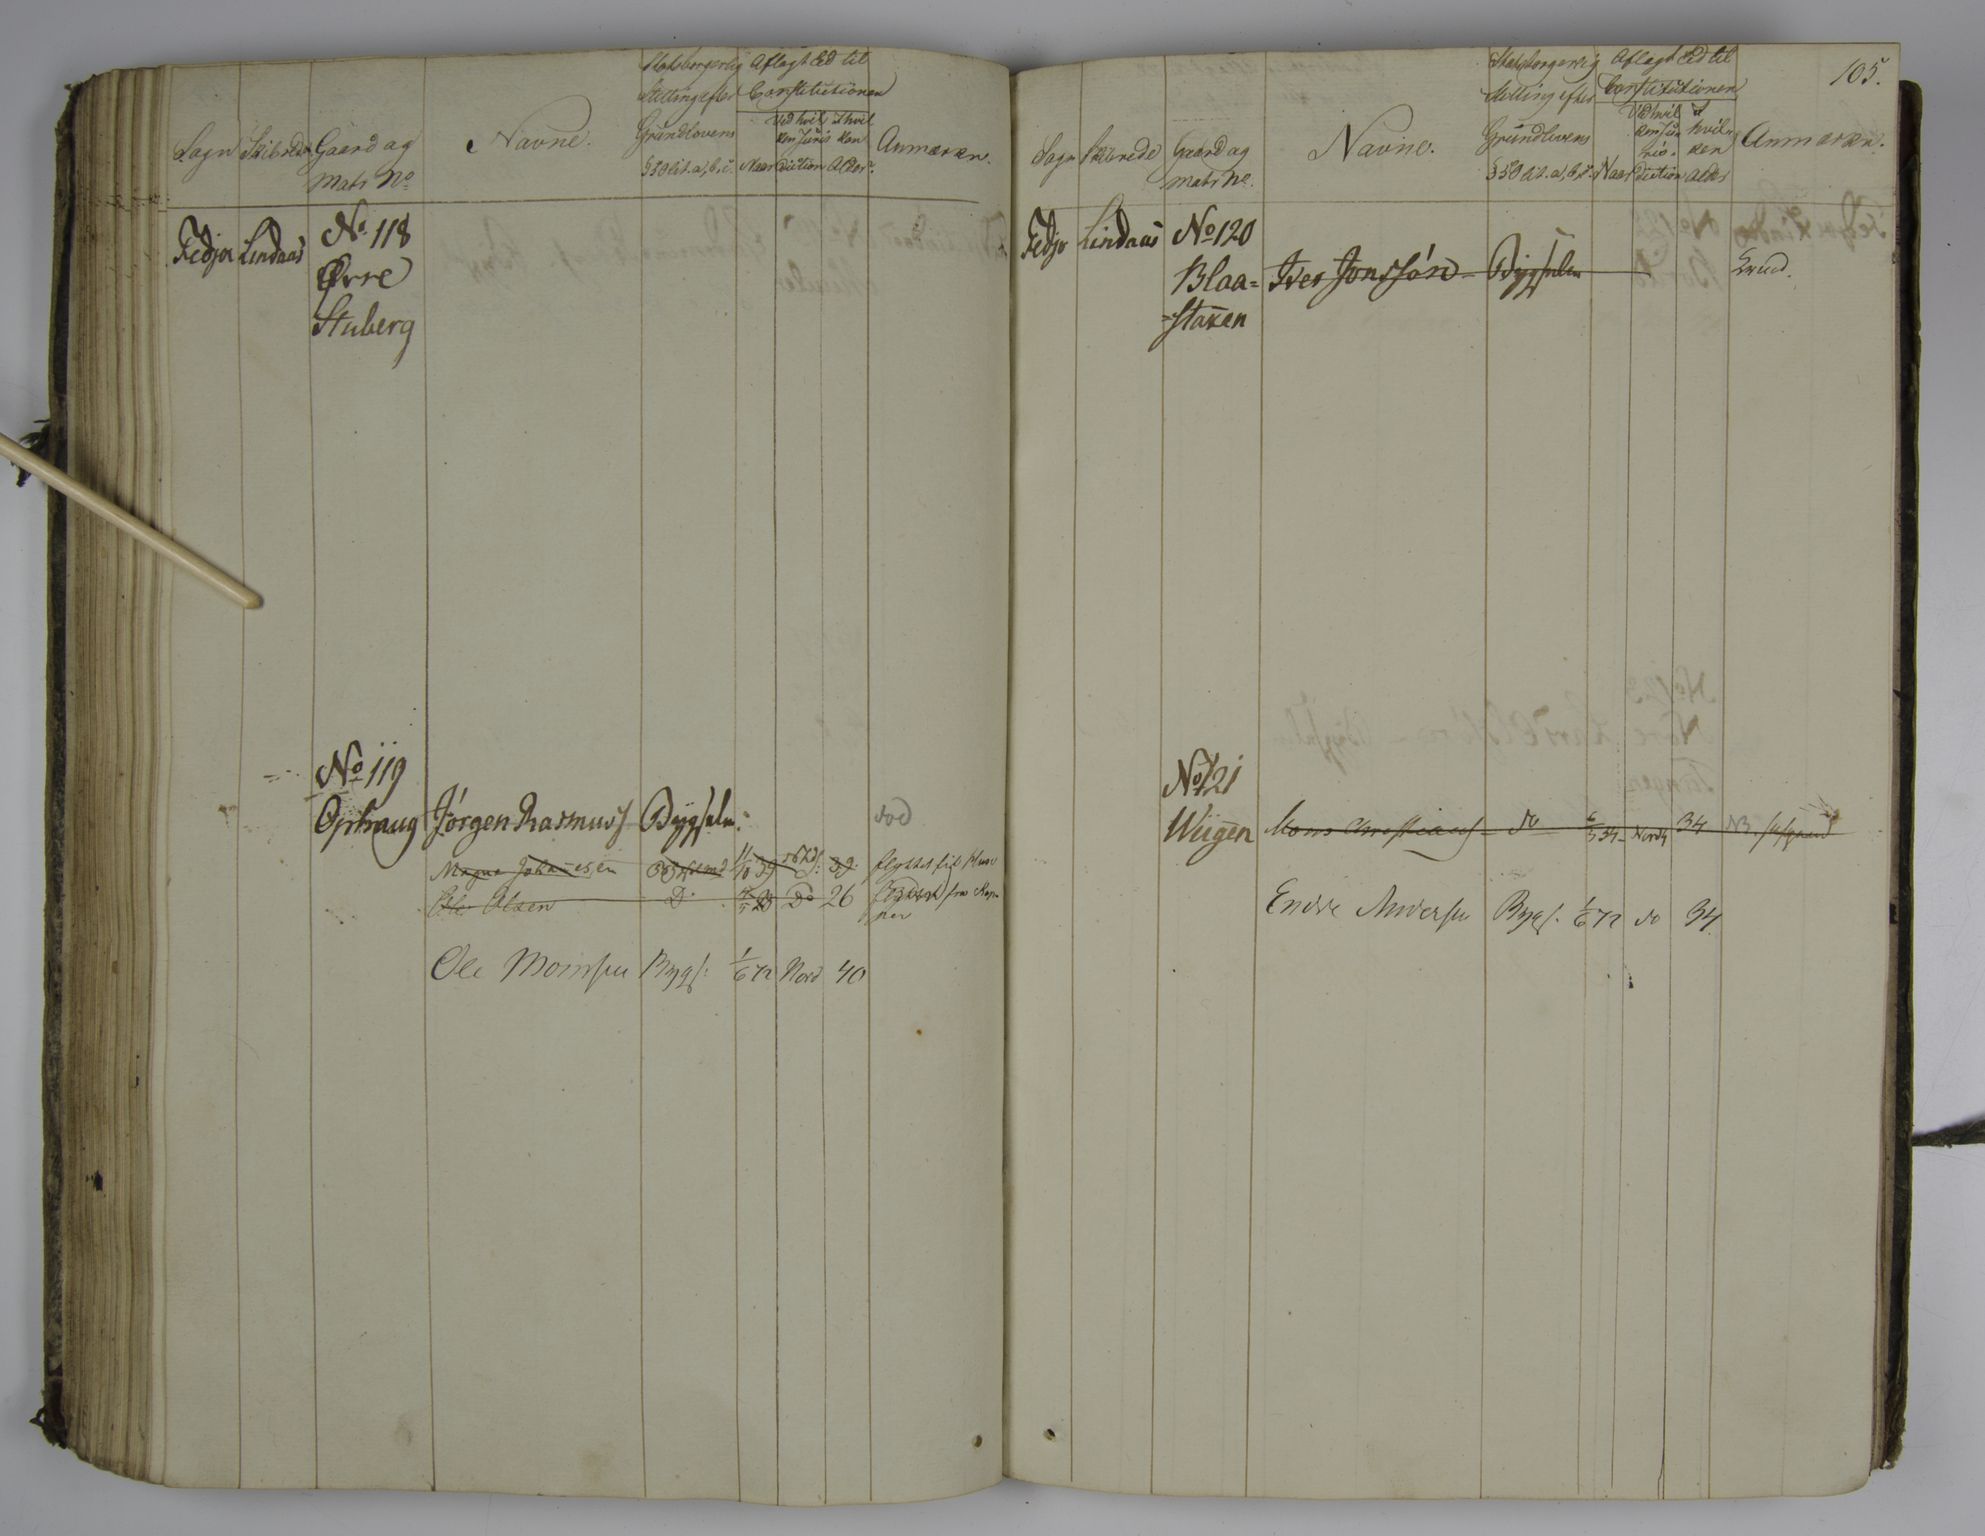 Sogn Skibrede Gaard og Matr No
Navne.
Statsborgerlig Stilling efter Grundlovens § 50 lit. a, b, c.
Aflagt Ed til Constitutionen
Naar
Ved hvilken Jurisdiction
I hvilken Alder
Anmærkn.
Fedje Lindaas No 118
Øvre
Stuberg
No 119
Ophaug Jörgen Rasmuss Bygselm. død
Magne Johannessen Bygselmd 11/10 39 39 flyttet til
Ole Olsen Do Do 26 flyttet fra
Ole Monssen Bygs. 1/6 72 Nord 40
105.
Sogn Skibrede Gaard og Matr No.
Navne.
Statsborgerlig Stilling efter Grundlovens § 50 lit. a, b, c.
Aflagt Ed til Constitutionen
Naar
Ved hvilken Jurisdiction
I hvilken Alder
Anmærkn.
Fedje Lindaas No 120
Blaa= Iver Jonssön - Bygselm
=staken
No 121
Wiigen Mons Christians - do 34 Nordh 34
Endre Andersen Bygs. 1/6 72 do 34